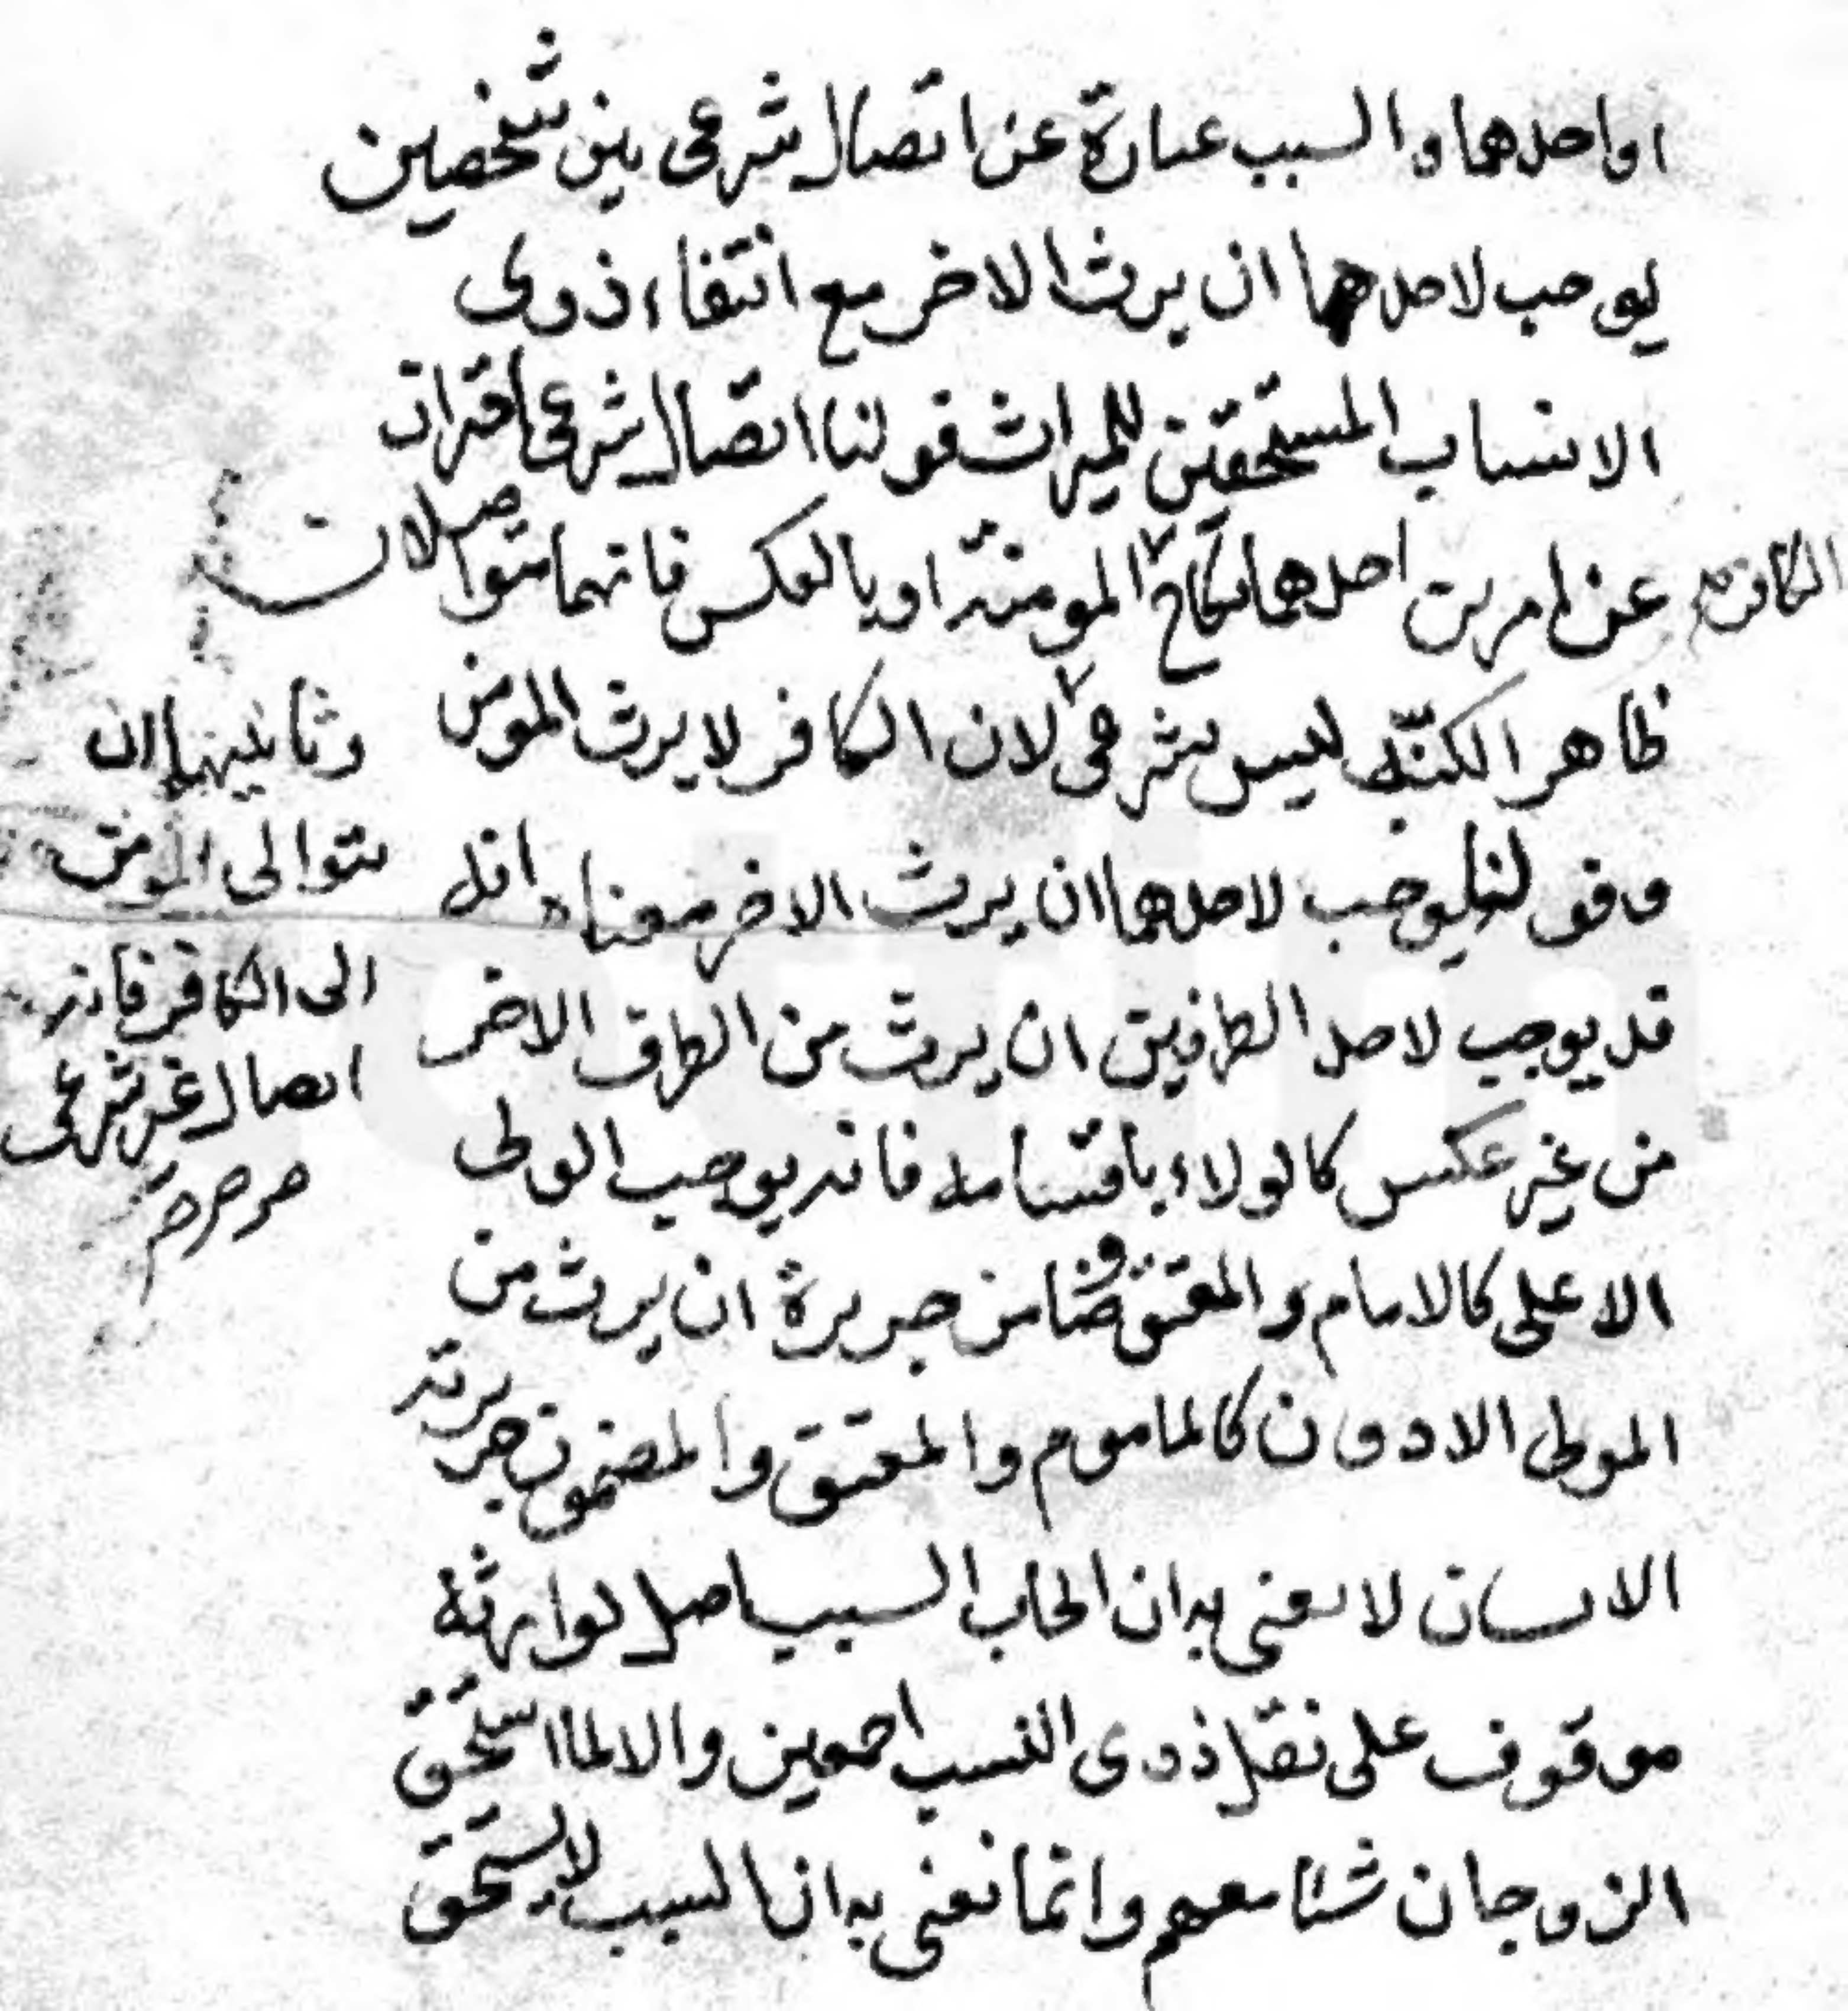 او احدهما والسبب عبارة عن اتصال شرعى بين شخصين
يوجب لاحدهما ان يرث الاخر مع انتفاء ذوى
الانساب المستحقين للميراث فولنا اتصال شرعى احتراز
عن امرين احدهما نكاح المومنة او بالعكس فانهما متواصلان
الكافر
ظاهرا لكنّه ليس بشرعى لان الكافر لا يرث المومن
وقولنا يوجب لاحدهما ان يرث الاخر معناه انه
قد يوجب لاحد الطرفين ان يرث من الطرف الاخر
من غير عكس كالولاء باقسامه فانه يوجب الولى
الاعلى كالامام والمعتق وضامن جريرة ان يرث من
المولى الادون كالماموم والمعتق والمضمون جريرته
الانسان لا يعنى به ان ايجاب السبب اصل لوارثه
موقوف على نقل ذوى النسب اجمعين والا لما استحق
الزوجان شئا معهم وانما نعنى به ان السبب لا يستحق
وثانيهما ان
يتوالى المومن
الى الكافر فانه
اتصال غير شرعى